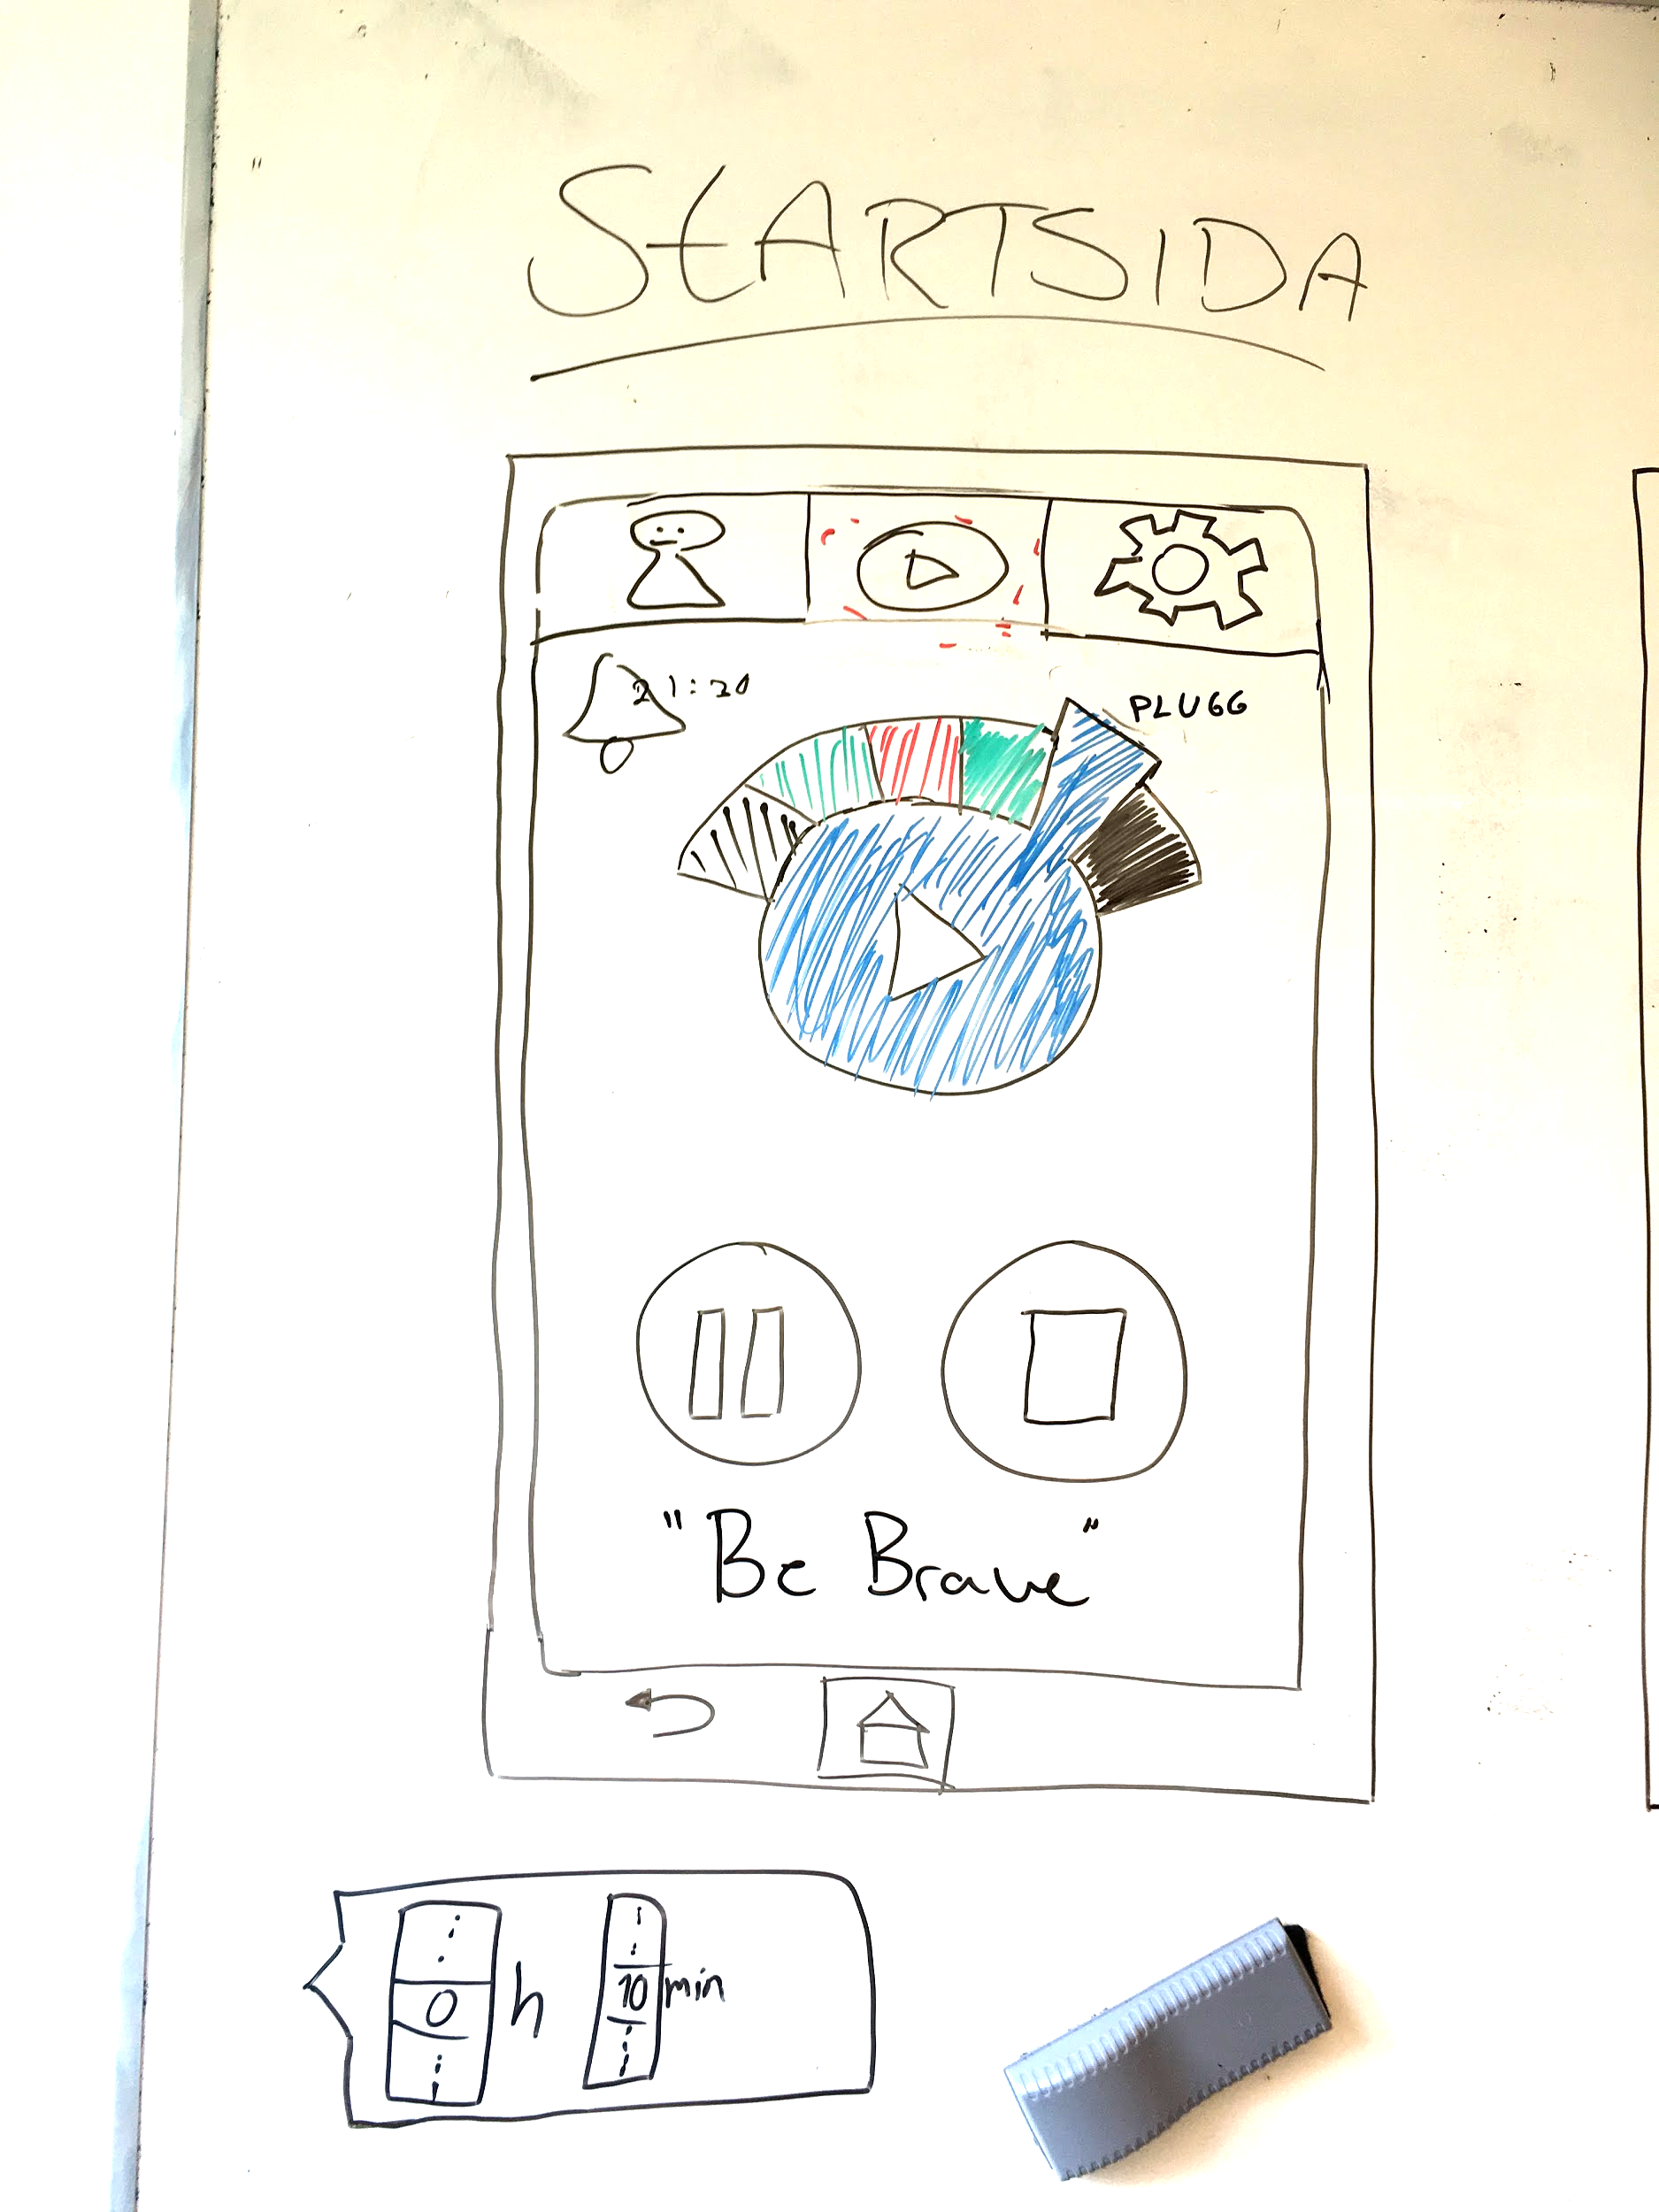 StARTSIDA
21:30
PLUGG
"Be Brave"
0 h 10 min